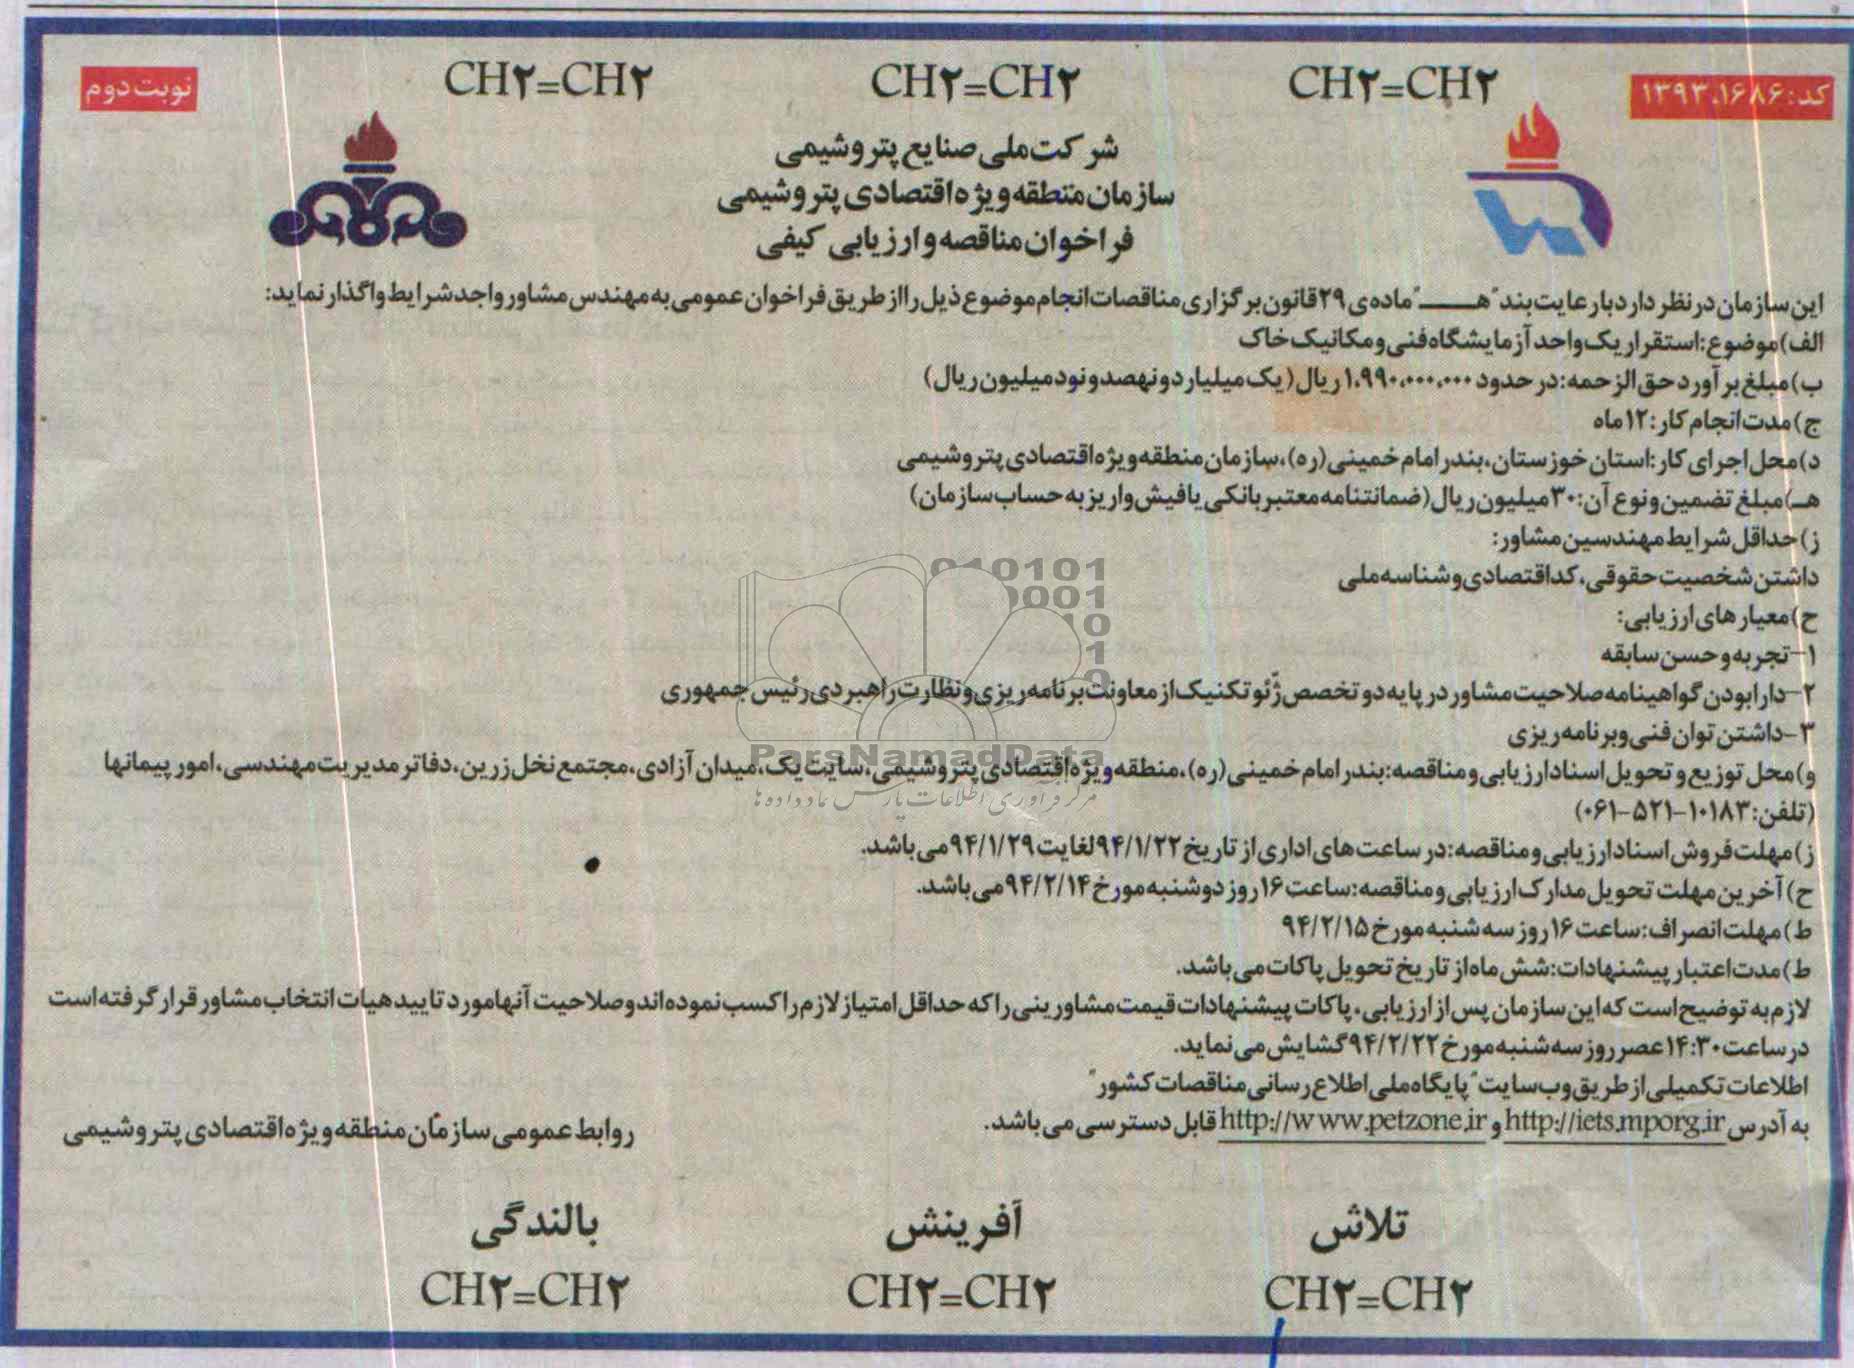 کد: ۱۳۹۳،۱۶۸۶
CH۲=CH۲ CH۲=CH۲ CH۲=CH۲
نوبت دوم
شرکت ملی صنایع پتروشیمی
سازمان منطقه ویژه اقتصادی پتروشیمی
فراخوان مناقصه و ارزیابی کیفی
این سازمان در نظر دارد با رعایت بند "هـ" ماده‌ی ۲۹ قانون برگزاری مناقصات انجام موضوع ذیل را از طریق فراخوان عمومی به مهندس مشاور واجد شرایط واگذار نماید:
الف) موضوع: استقرار یک واحد آزمایشگاه فنی و مکانیک خاک
ب) مبلغ برآورد حق الزحمه: در حدود ۱،۹۹۰،۰۰۰،۰۰۰ ریال (یک میلیارد و نهصد و نود میلیون ریال)
ج) مدت انجام کار: ۱۲ ماه
د) محل اجرای کار: استان خوزستان، بندر امام خمینی (ره)، سازمان منطقه ویژه اقتصادی پتروشیمی
هـ) مبلغ تضمین و نوع آن: ۳۰ میلیون ریال (ضمانتنامه معتبر بانکی یا فیش واریز به حساب سازمان)
ز) حداقل شرایط مهندسین مشاور:
داشتن شخصیت حقوقی، کد اقتصادی و شناسه ملی
ح) معیارهای ارزیابی:
۱- تجربه و حسن سابقه
۲- دارا بودن گواهینامه صلاحیت مشاور در پایه دو تخصص ژئوتکنیک از معاونت برنامه ریزی و نظارت راهبردی رئیس جمهوری
۳- داشتن توان فنی و برنامه ریزی
و) محل توزیع و تحویل اسناد ارزیابی و مناقصه: بندر امام خمینی (ره)، منطقه ویژه اقتصادی پتروشیمی، سایت یک، میدان آزادی، مجتمع نخل زرین، دفاتر مدیریت مهندسی، امور پیمانها
(تلفن: ۱۰۱۸۳-۵۲۱-۰۶۱)
ز) مهلت فروش اسناد ارزیابی و مناقصه: در ساعت های اداری از تاریخ ۹۴/۱/۲۲ لغایت ۹۴/۱/۲۹ می باشد.
ح) آخرین مهلت تحویل مدارک ارزیابی و مناقصه: ساعت ۱۶ روز دوشنبه مورخ ۹۴/۲/۱۴ می باشد.
ط) مهلت انصراف: ساعت ۱۶ روز سه شنبه مورخ ۹۴/۲/۱۵
ط) مدت اعتبار پیشنهادات: شش ماه از تاریخ تحویل پاکات می باشد.
لازم به توضیح است که این سازمان پس از ارزیابی، پاکات پیشنهادات قیمت مشاورینی را که حداقل امتیاز لازم را کسب نموده اند و صلاحیت آنها مورد تایید هیات انتخاب مشاور قرار گرفته است
در ساعت ۱۴:۳۰ عصر روز سه شنبه مورخ ۹۴/۲/۲۲ گشایش می نماید.
اطلاعات تکمیلی از طریق وب سایت "پایگاه ملی اطلاع رسانی مناقصات کشور"
به آدرس http://iets.mporg.ir و http://www.petzone.ir قابل دسترسی می باشد.
روابط عمومی سازمان منطقه ویژه اقتصادی پتروشیمی
تلاش آفرینش بالندگی
CH۲=CH۲ CH۲=CH۲ CH۲=CH۲
010101
0001
10
1
0
ParsNamadData
مرکز فرآوری اطلاعات پارس نماد داده ها